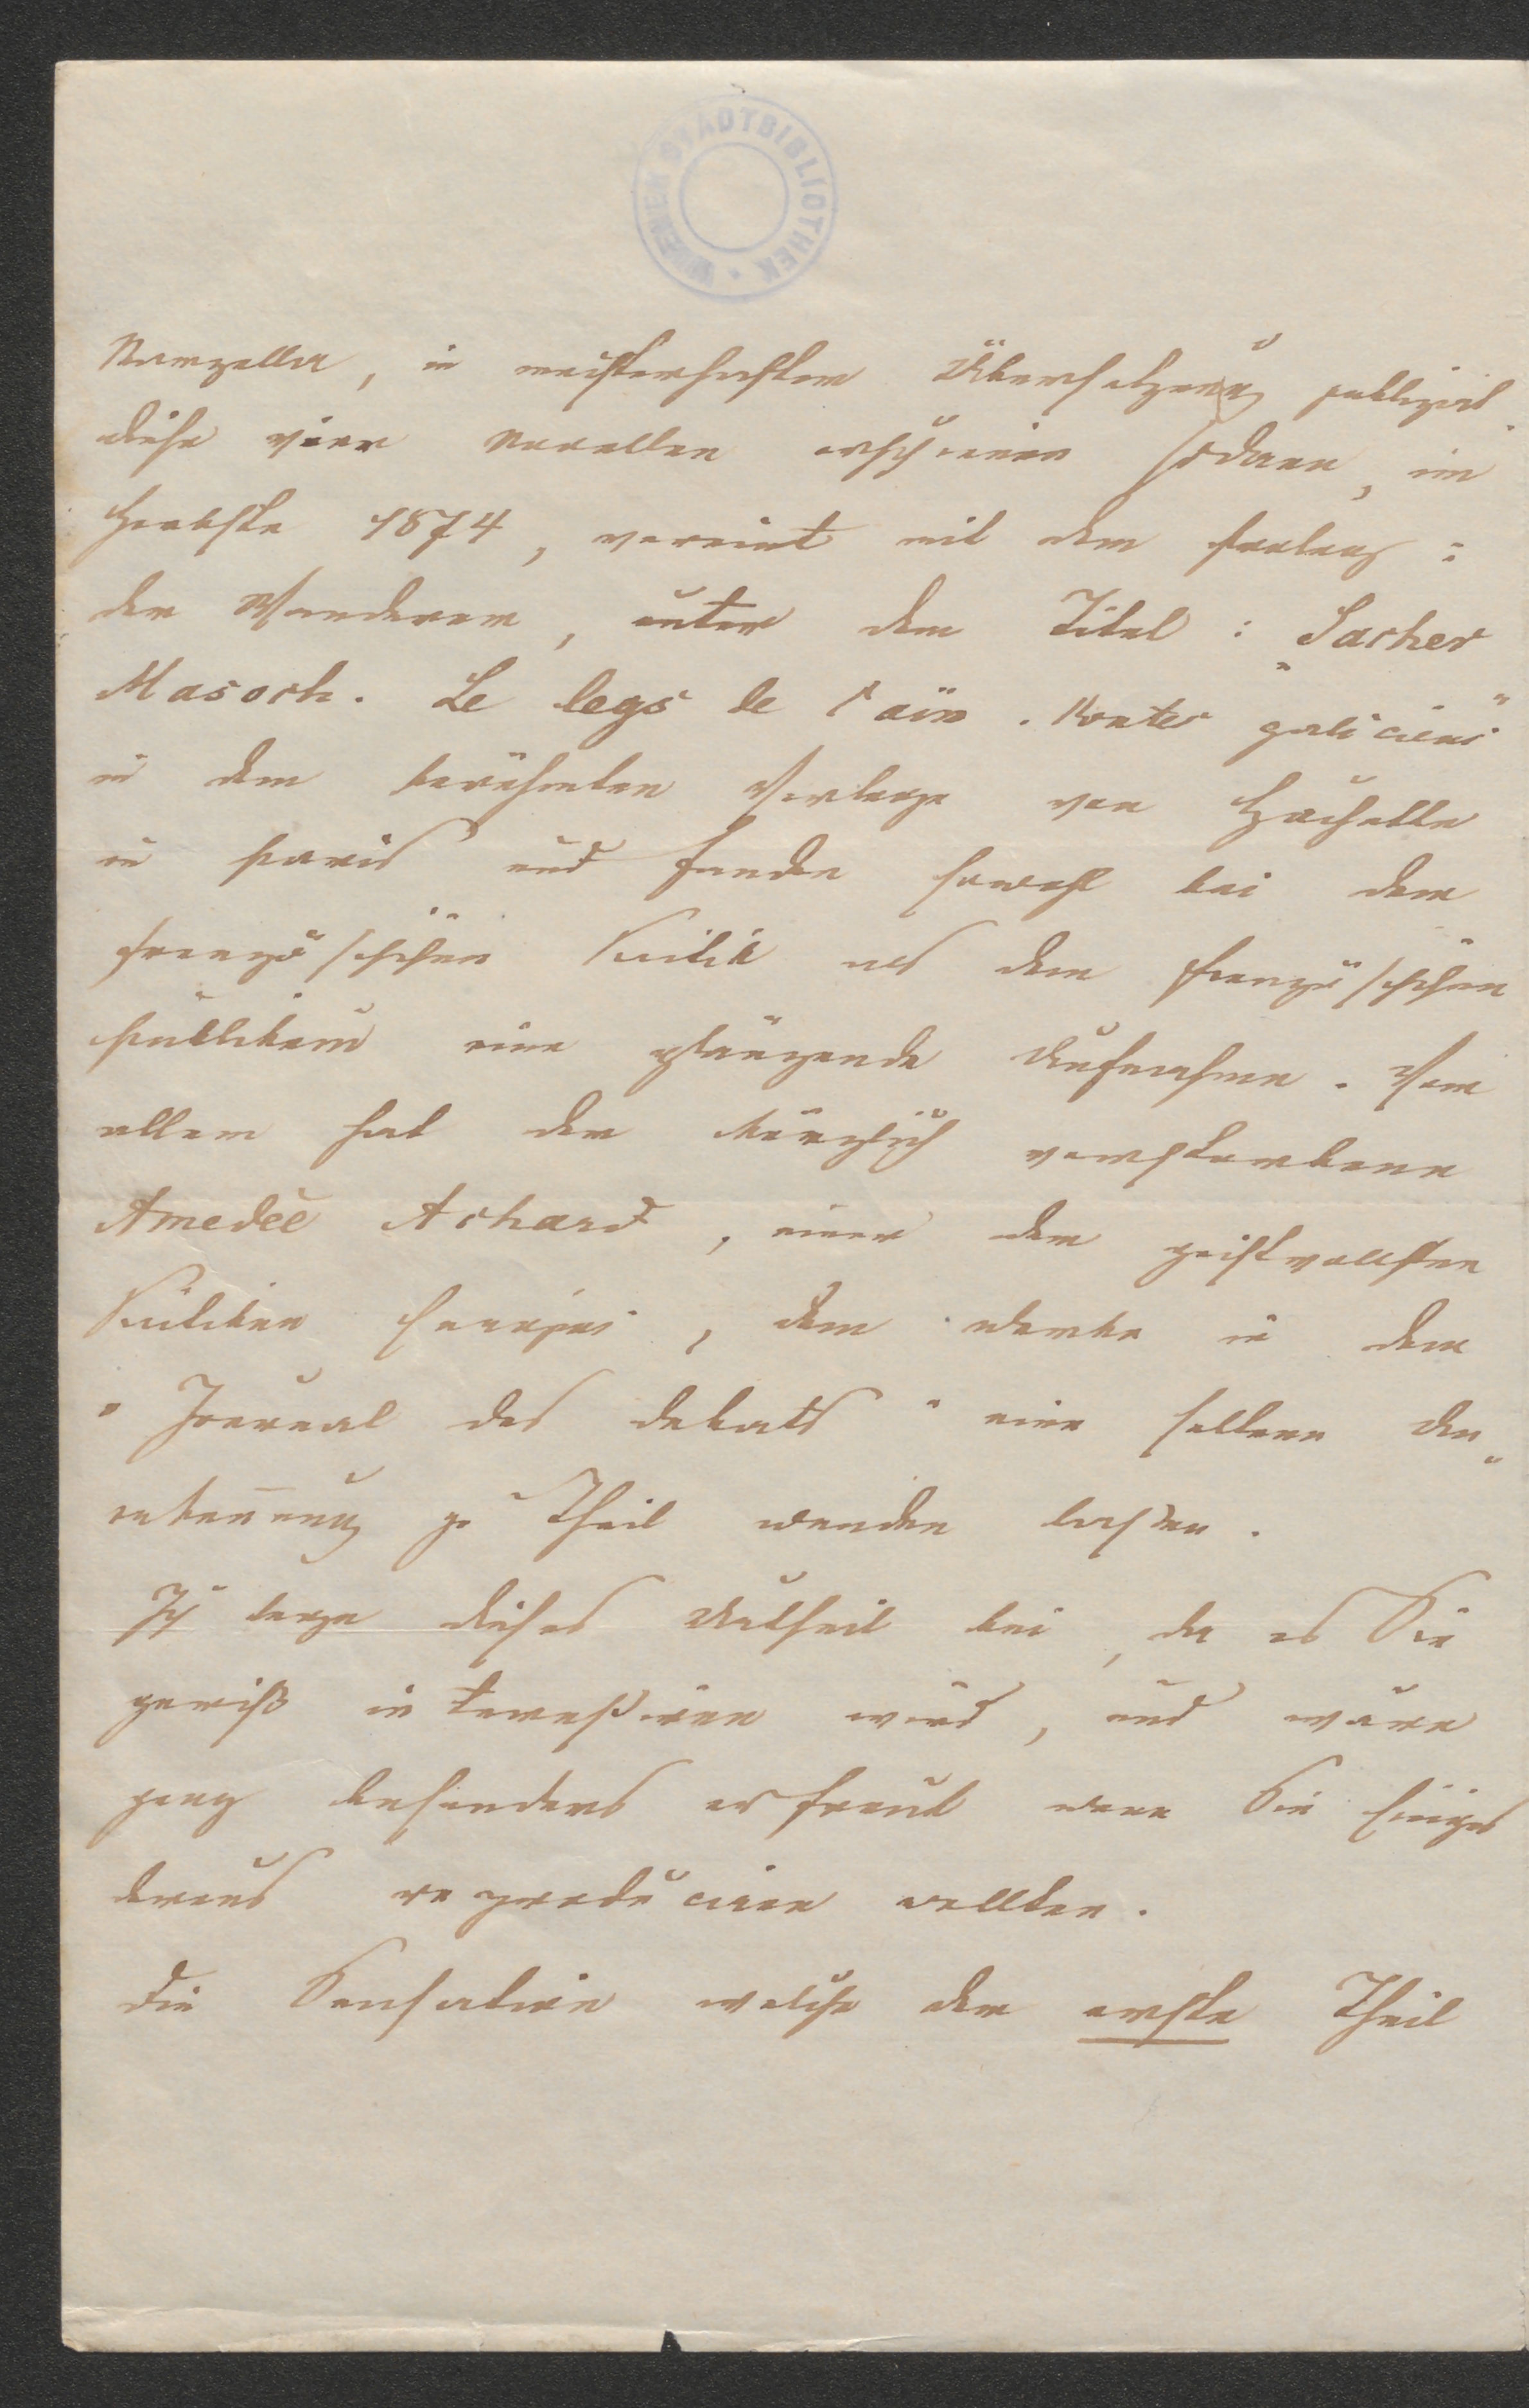 WIENER STADTBIBLIOTHEK
Marzella, in meisterhafter Übersetzung publizirt.
diese vier Novellen erschienen sodann, im
Herbste 1874, vereint mit dem Prolog:
der Wanderer, unter dem Titel: "Sacher
Masoch. Le legs de Caïn. Contes galiciens"
in dem berühmten Verlage von Hachette
in Paris und fanden sowohl bei der
französischen Kritik als dem französischen
Publikum eine glänzende Aufnahme. Vor
allem hat der kürzlich verstorbene
Amedée Achard, einer der geistvollsten
Kritiker Frankreichs, dem Werke in dem
"Journal des debats" eine seltene An-
erkennung zu Theil werden lassen.
Ich lege dieses Urtheil bei, da es Sie
gewiß interessiren wird, und wäre
ganz besonders erfreut wenn Sie Einiges
daraus reproduciren wollten.
Die Sensation welche der erste Theil